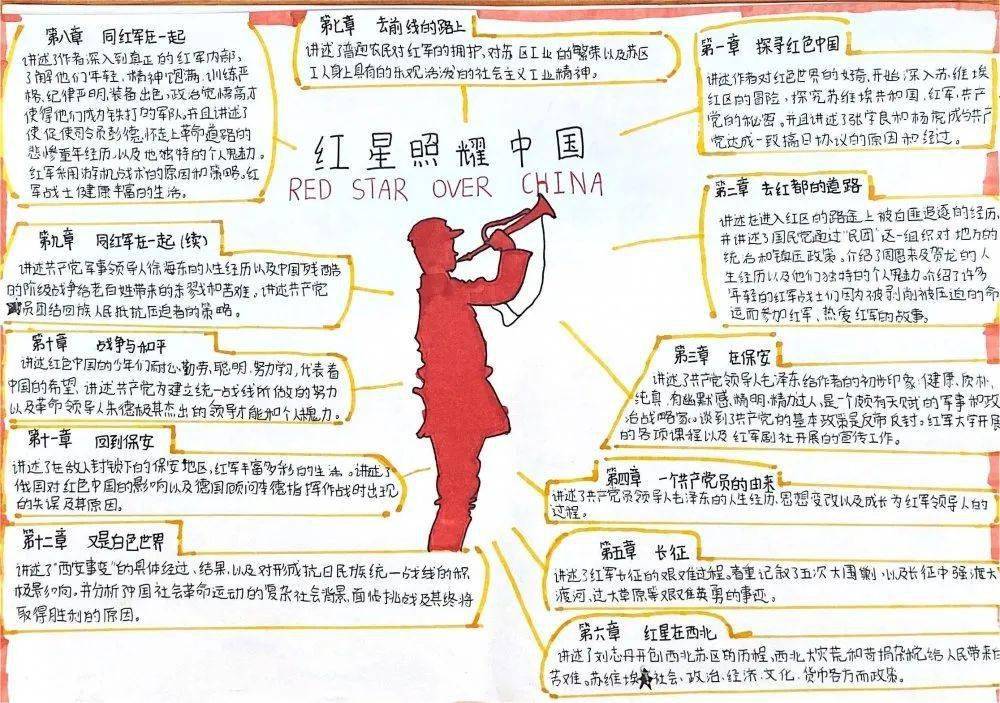 红星照耀中国
RED STAR OVER CHINA
第一章 探寻红色中国
讲述作者对红色世界的好奇,开始深入苏维埃
红区的冒险,探究苏维埃共和国,红军,共产
党的秘密。并且讲述了张学良和杨虎成与共产
党达成一致搞日协议的原因和经过。
第二章 去红都的道路
讲述在进入红区的路途上被白匪追逐的经历,
并讲述了国民党通过“民团”这一组织对地方的
统治和镇压政策。介绍了周恩来及贺龙的人
生经历以及他们独特的个人魅力,介绍了许多
年轻的红军战士们因为被剥削被压迫的命
运而参加红军、热爱红军的故事。
第三章 在保安
讲述了共产党领导人毛泽东给作者的初步印象:健康,质朴,
纯真,有幽默感,精明,精力过人,是一个颇有天赋的军事和政
治战略家。谈到共产党的基本政策是反帝反封。红军大学开展
的各项课程以及红军剧社开展的宣传工作。
第四章 一个共产党员的由来
讲述了共产党员领导人毛泽东的人生经历,思想变改以及成长为红军领导人的
过程。
第五章 长征
讲述了红军长征的艰难过程。着重记叙了五次大围剿,以及长征中强渡大
渡河,过大草原等艰难英勇的事迹。
第六章 红星在西北
讲述了刘志丹开创西北苏区的历程,西北大灾荒和苛捐杂税给人民带来的
苦难。苏维埃社会、政治、经济、文化、货币各方面政策。
第七章 去前线的路上
讲述了普通农民对红军的拥护,对苏区工业的繁荣以及苏区
工人身上具有的乐观活泼的社会主义工业精神。
第八章 同红军在一起
讲述作者深入到真正的红军内部,
了解他们年轻、精神饱满,训练严
格,纪律严明,装备出色,政治觉悟高才
使得他们成为铁打的军队。并且讲述了
使促使司令员彭德怀走上革命道路的
悲惨童年经历,以及他独特的个人魅力。
红军采用游机战术的原因和策略。红
军战士健康丰富的生活。
第九章 同红军在一起(续)
讲述共产党军事领导人徐海东的人生经历以及中国残酷
的阶级战争给老百姓带来的杀戮和苦难。讲述共产党
员团结回族人民抵抗压迫者的策略。
第十章 战争与和平
讲述红色中国的少年们耐心,勤劳,聪明,努力学习,代表着
中国的希望。讲述共产党为建立统一战线所做的努力
以及革命领导人朱德极其杰出的领导才能和个人魄力。
第十一章 回到保安
讲述了在敌人封锁下的保安地区,红军丰富多彩的生活。讲述了
俄国对红色中国的影响以及德国顾问李德指挥作战时出现
的失误及其原因。
第十二章 又是白色世界
讲述了“西安事变”的具体经过、结果,以及对形成抗日民族统一战线的积
极影响,并分析了中国社会革命运动的复杂社会背景,面临挑战及其终将
取得胜利的原因。